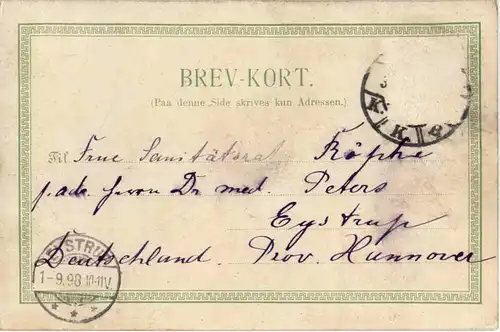 BREV-KORT.
(Paa denne Side skrives kun Adressen.)
K K
Til Frue Sanitätsrat Köpke
p. adr. Herrn Dr med. Peters
Eystrup
Deutschland. Prov. Hannover
EYSTRUP
1-9.98 10-11V.